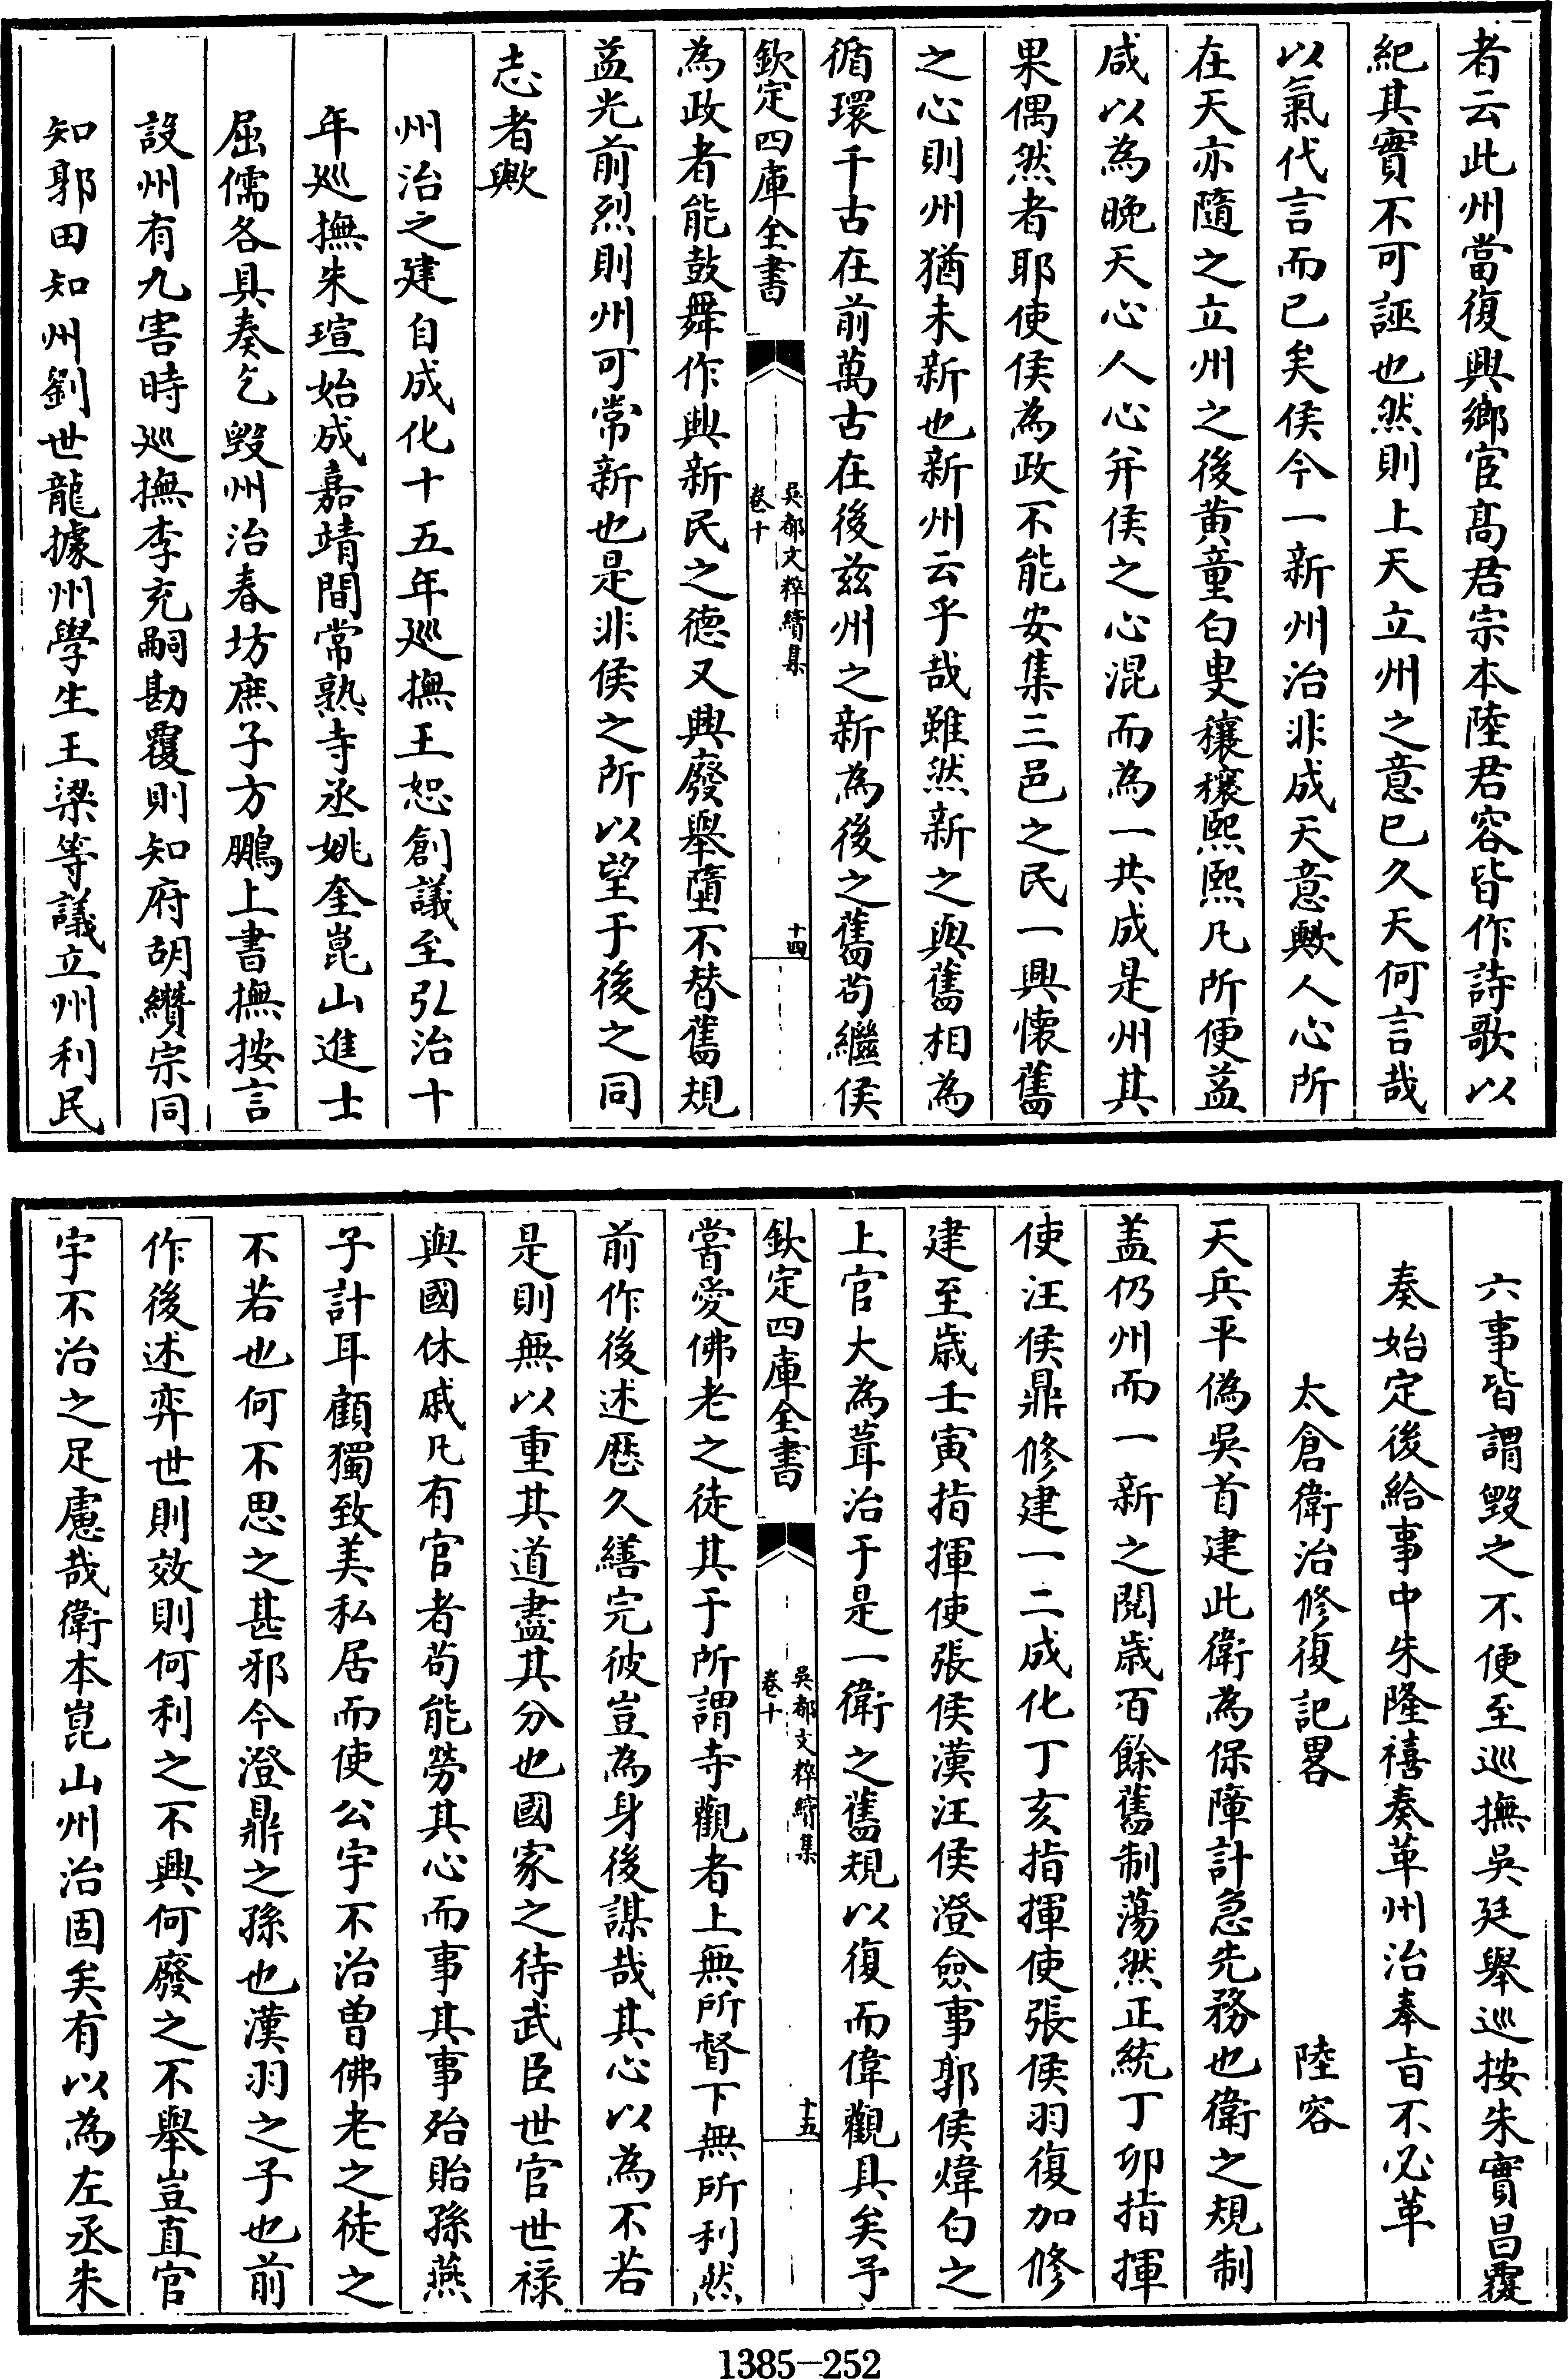 者云此州當復興鄉宦髙君宗本陸君容皆作詩歌以
紀其實不可誣也然則上天立州之意已久天何言哉
以氣代言而已矣侯今一新州治非成天意歟人心所
在天亦隨之立州之後黄童白叟穰穰熙熙凡所便益
咸以為晚天心人心并侯之心混而為一共成是州其
果偶然者耶使侯為政不能安集三邑之民一興懷舊
之心則州猶未新也新州云乎哉雖然新之與舊相為
循環千古在前萬古在後兹州之新為後之舊茍繼侯
欽定四庫全書
吳都文粹續集
卷十
十四
為政者能鼓舞作興新民之德又興廢舉墮不替舊規
益光前烈則州可常新也是非侯之所以望于後之同
志者歟
州治之建自成化十五年巡撫王恕創議至弘治十
年巡撫朱瑄始成嘉靖間常熟寺丞姚奎崑山進士
屈儒各具奏乞毀州治春坊庶子方鵬上書撫按言
設州有九害時巡撫李充嗣勘覆則知府胡纘宗同
知郭田知州劉世龍據州學生王梁等議立州利民
六事皆謂毀之不便至巡撫吳廷舉巡按朱實昌覆
奏始定後給事中朱隆禧奏革州治奉旨不必革
太倉衛治修復記畧
陸容
天兵平偽吳首建此衛為保障計急先務也衛之規制
盖仍州而一新之閱歲百餘舊制蕩然正統丁卯指揮
使汪侯鼎修建一二成化丁亥指揮使張侯羽復加修
建至歲壬寅指揮使張侯漢汪侯澄僉事郭侯煒白之
上官大為葺治于是一衛之舊規以復而偉觀具矣予
欽定四庫全書
吳都文粹續集
卷十
十五
嘗愛佛老之徒其于所謂寺觀者上無所督下無所利然
前作後述歷久繕完彼豈為身後謀哉其心以為不若
是則無以重其道盡其分也國家之待武臣世官世祿
與國休戚凡有官者茍能勞其心而事其事殆貽孫燕
子計耳顧獨致美私居而使公宇不治曽佛老之徒之
不若也何不思之甚邪今澄鼎之孫也漢羽之子也前
作後述弈世則效則何利之不興何廢之不舉豈直官
宇不治之足慮哉衛本崑山州治固矣有以為左丞朱
1385—252